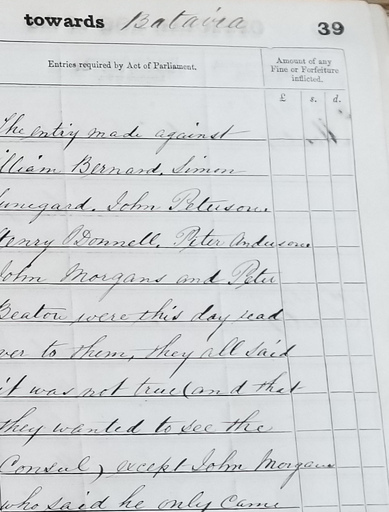 towards Batavia 39
Entries required by Act of Parliament.
Amount of any
Fine or Forfeiture
inflicted.
£ s. d.
The entry made against
illiam Bernard. Simon
unegard. John Peterson.
Henry O'Donnell. Peter Anderson
John Morgans and Peter
Beaton were this day read
ver to them, they all said
it was not true (and that
they wanted to see the
Consul) except John Morgans
who said he only came